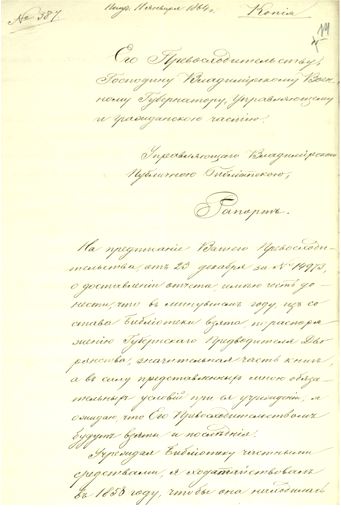 № 387
11 января 1864 г.
Копія
Его Превосходительству,
Господину Владимірскому Воен-
ному Губернатору, управляющему
и гражданскою частію.
Управляющаго Владимірскою
Публичною библіотекою,
Рапортъ.
На предписаніе Вашего Превосходи-
тельства отъ 23 декабря за № 14973,
о доставленіи отчета имѣю честь до-
нести, что въ минувшемъ году, изъ со
става библіотеки взята по распоря-
женію Губернскаго Предводителя Дво
рянства, значительная часть книгъ,
а въ силу представленныхъ мною обяза-
тельныхъ условій при ея учрежденіи, я
ожидаю, что Его Превосходительствомъ
будутъ взяты и послѣднія.
Учреждая библіотеку частными
средствами, я ходатайствовалъ
въ 1858 году, чтобы она находилась